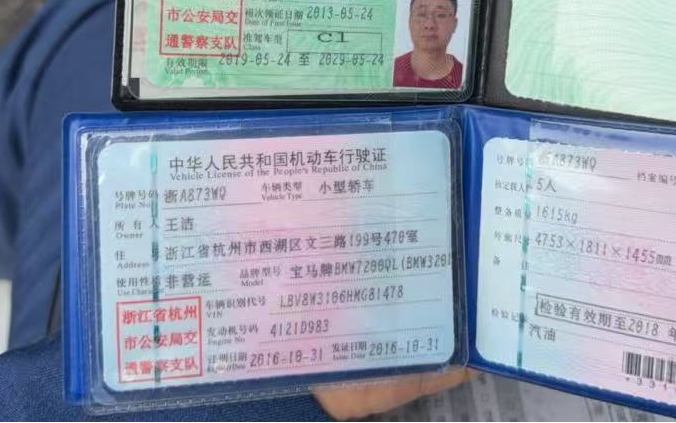 市公安局交
通警察支队
初次领证日期 2013-05-24
Date of First Issue
准驾车型 C1
Class
有效期限 2019-05-24 至 2029-05-24
Valid Period
中华人民共和国机动车行驶证
Vehicle License of the People's Republic of China
号牌号码 浙A873WQ 车辆类型 小型轿车
Plate No. Vehicle Type
所有人 王洁
Owner
住 浙江省杭州市西湖区文三路199号470室
Address
使用性质 非营运 品牌型号 宝马牌BMW7200QL(BMW320l
Use Character Model
浙江省杭州
市公安局交
通警察支队
车辆识别代号 LBV8W3106HMG81478
VIN
发动机号码 4121D983
Engine No
注册日期 2016-10-31 发证日期 2016-10-31
Register Date Issue Date
号牌号码 浙A873WQ 档案编号
核定载人 5人
整备质量 1615kg
外廓尺寸 4753×1811×1455mm
备 注
检验有效期至2018 年
检验记录
汽油